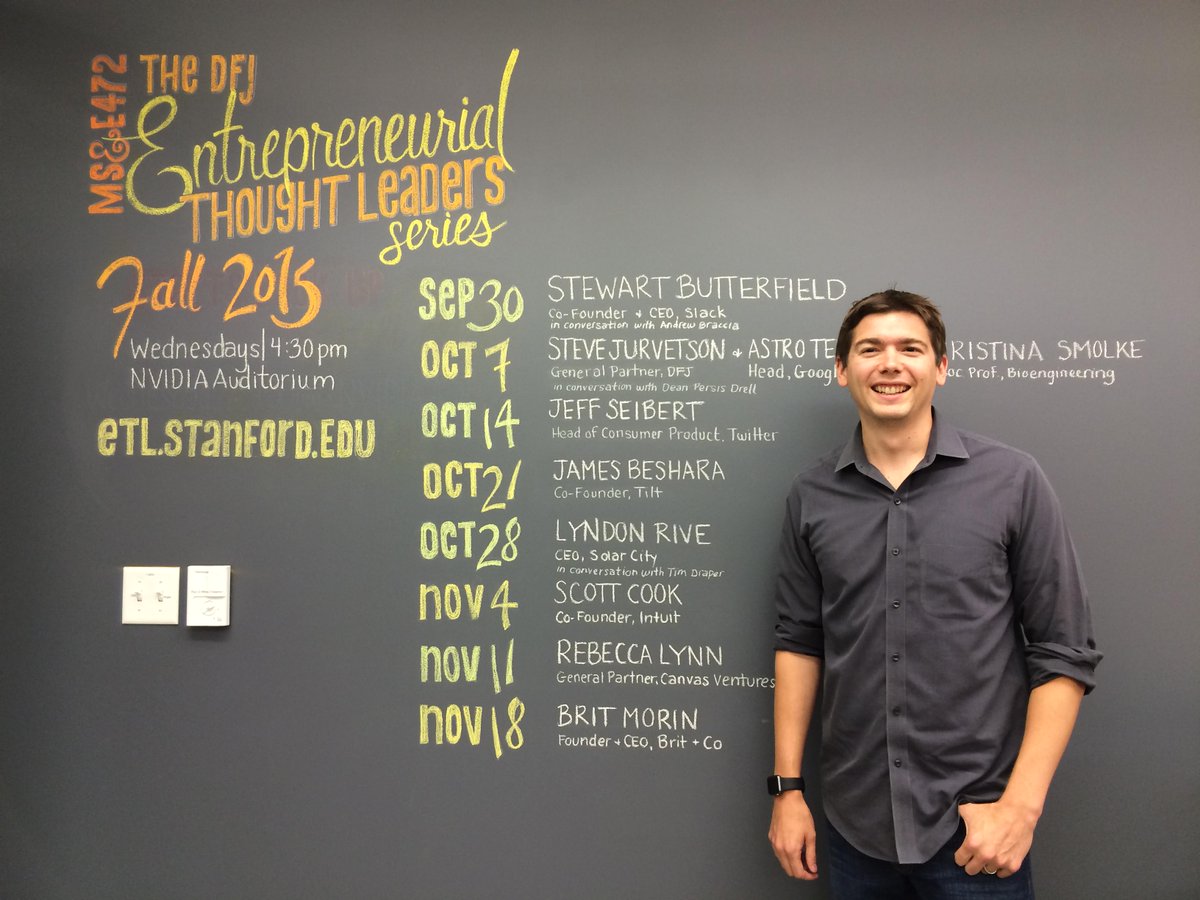 MS&E472
THE DFJ
Entrepreneurial
THOUGHT LEADERS
series
Fall 2015
Wednesdays | 4:30pm
NVIDIA Auditorium
eTL.STANFORD.EDU
SEP 30
STEWART BUTTERFIELD
Co-Founder + CEO, Slack
in conversation with Andrew Braccia
OCT 7
STEVE JURVETSON + ASTRO TE RISTINA SMOLKE
General Partner, DFJ Head, Goog oc Prof., Bioengineering
in conversation with Dean Persis Drell
OCT 14
JEFF SEIBERT
Head of Consumer Product, Twitter
OCT 21
JAMES BESHARA
Co-Founder, Tilt
OCT 28
LYNDON RIVE
CEO, Solar City
in conversation with Tim Draper
NOV 4
SCOTT COOK
Co-Founder, Intuit
NOV 11
REBECCA LYNN
General Partner, Canvas Ventures
NOV 18
BRIT MORIN
Founder + CEO, Brit + Co